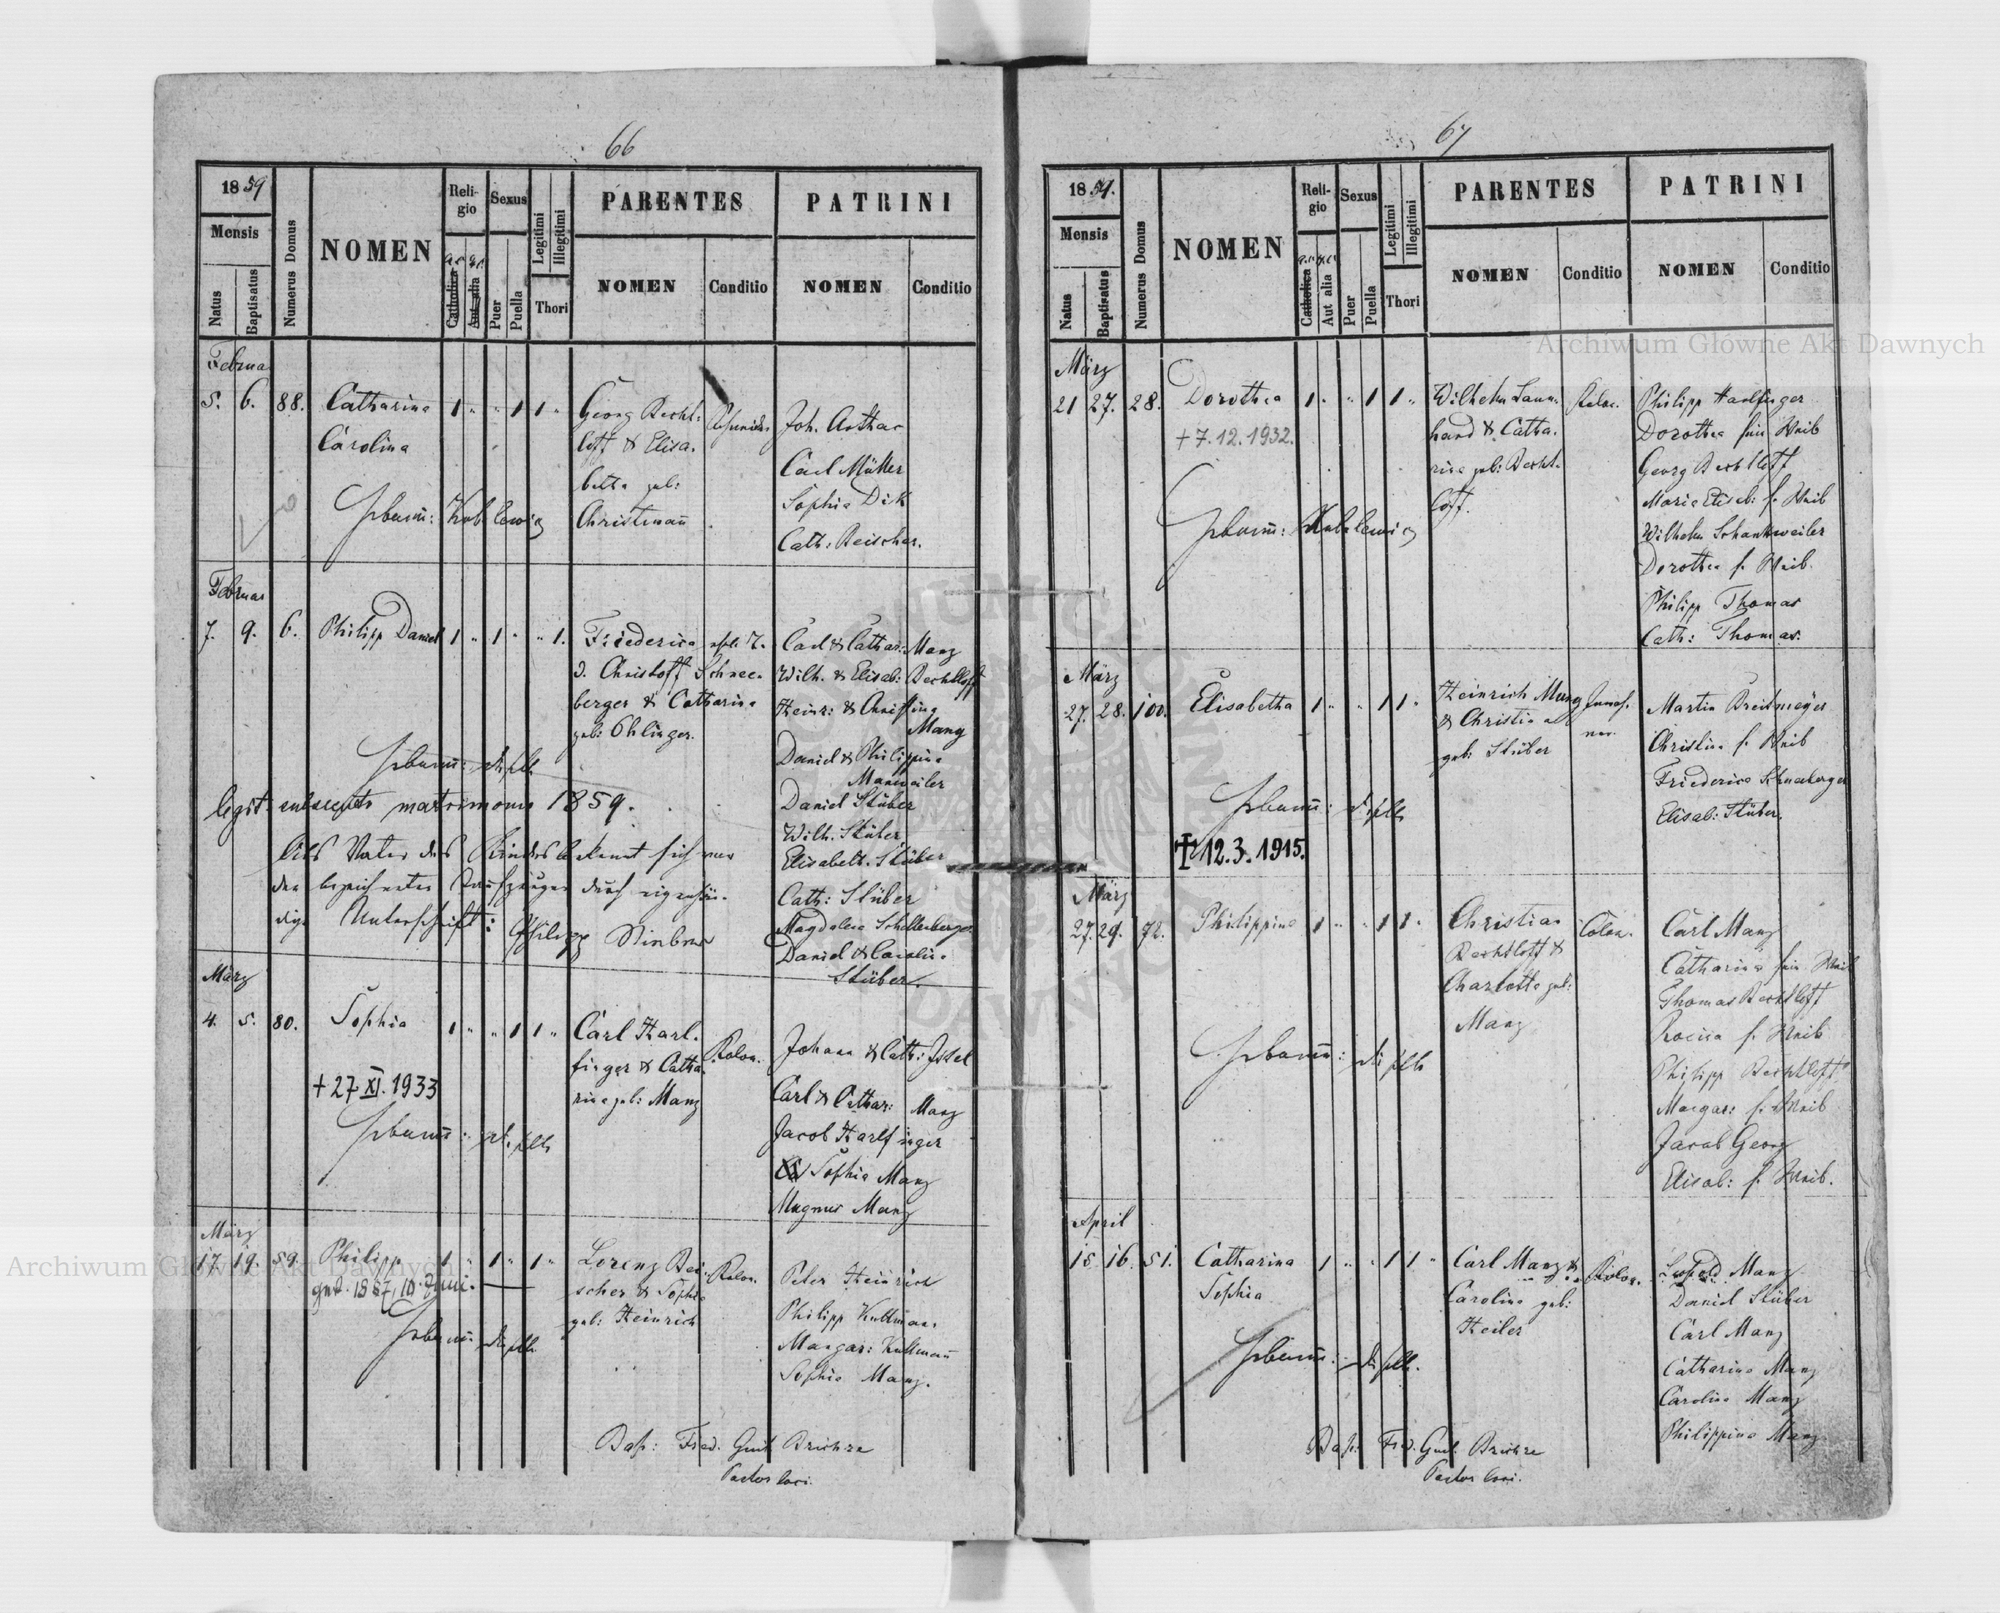 66
1859
Mensis
Natus
Baptisatus
Numerus Domus
NOMEN
Religio
Catholica
Aut alia
Sexus
Puer
Puella
Legitimi
Illegitimi
Thori
PARENTES
NOMEN
Conditio
PATRINI
NOMEN
Conditio
Februar
5. 6. 88. Catharina 1 " " 1 1 "
Carolina
Georg Becht-
loff & Elisa-
betha geb:
Christmañ
Joh. Arthar
Carl Müller
Sophia Dik
Cath: Reischer.
Februar
7. 9. 6. Philipp Daniel 1 " 1 " " 1.
Friederica
d. Christoff Schnee-
berger & Catharina
geb: Ohlinger.
Carl & Cathar: Manz
Wilh. & Elisab: Bechtloff
Heinr: & Christina
Manz
Daniel & Philippina
Manweiler
Daniel Stüber
Wilh. Stüber
Elisabeth. Stüber
Cath: Stüber
Magdalena Schellenberger
Daniel & Carolina
Stüber.
legit: subsequto matrimonio 1859.
Als Vater des Kindes bekennt sich
durch
Unterschrift: Philipp
März
4. 5. 80. Sophia 1 " " 1 1 "
+ 27. XI. 1933
Carl Harl-
finger & Catha-
rina geb: Manz
Kolon.
Johann & Cath: Issel
Carl & Cathar: Manz
Jacob Harlfinger
Sophia Manz
Magnus Manz
März
17. 19. 59. Philipp 1 " 1 " 1 "
Lorenz Rei-
scher & Sophia
geb: Heinrich
Kolon.
Peter Heinrich
Philipp Kullmann
Margar: Kullmañ
Sophia Manz.
Bap: Fred. Guil
Pastor loci.
67
1859.
Mensis
Natus
Baptisatus
Numerus Domus
NOMEN
Religio
Catholica
Aut alia
Sexus
Puer
Puella
Legitimi
Illegitimi
Thori
PARENTES
NOMEN
Conditio
PATRINI
NOMEN
Conditio
März
21 27. 28. Dorothea 1 " " 1 1 "
+ 7.12.1932.
Wilhelm
hard & Catha-
rina geb: Becht-
loff.
Kolon.
Philipp Harlfinger
Dorothea sein Weib
Georg Bechtloff
Maria Elisab: s. Weib
Wilhelm Schankweiler
Dorothea s. Weib.
Philipp Thomas
Cath: Thomas.
März
27. 28. 100. Elisabetha 1 " " 1 1 "
✝ 12.3.1915.
Heinrich Manz
& Christina
geb: Stüber
Martin Breitmeyer
Christina s. Weib
Friederica Schneeberger
Elisab: Stüber.
März
27. 29. 72. Philippina 1 " " 1 1 "
Christian
Bechtloff &
Charlotta geb:
Manz
Colon.
Carl Manz
Catharina sein Weib
Thomas Bechtloff
Rosina s. Weib
Philipp Bechtloff
Margar: s. Weib
Jacob Georg
Elisab: s. Weib.
April
15. 16. 51. Catharina 1 " " 1 1 "
Sophia
Carl Manz &
Carolina geb:
Keiler
Kolon.
Leopold Manz
Daniel Stüber
Carl Manz
Catharina Manz
Carolina Manz
Philippina Manz
Bap: Fred. Guil.
Pastor loci.
Archiwum Główne Akt Dawnych
Archiwum Główne Akt Dawnych